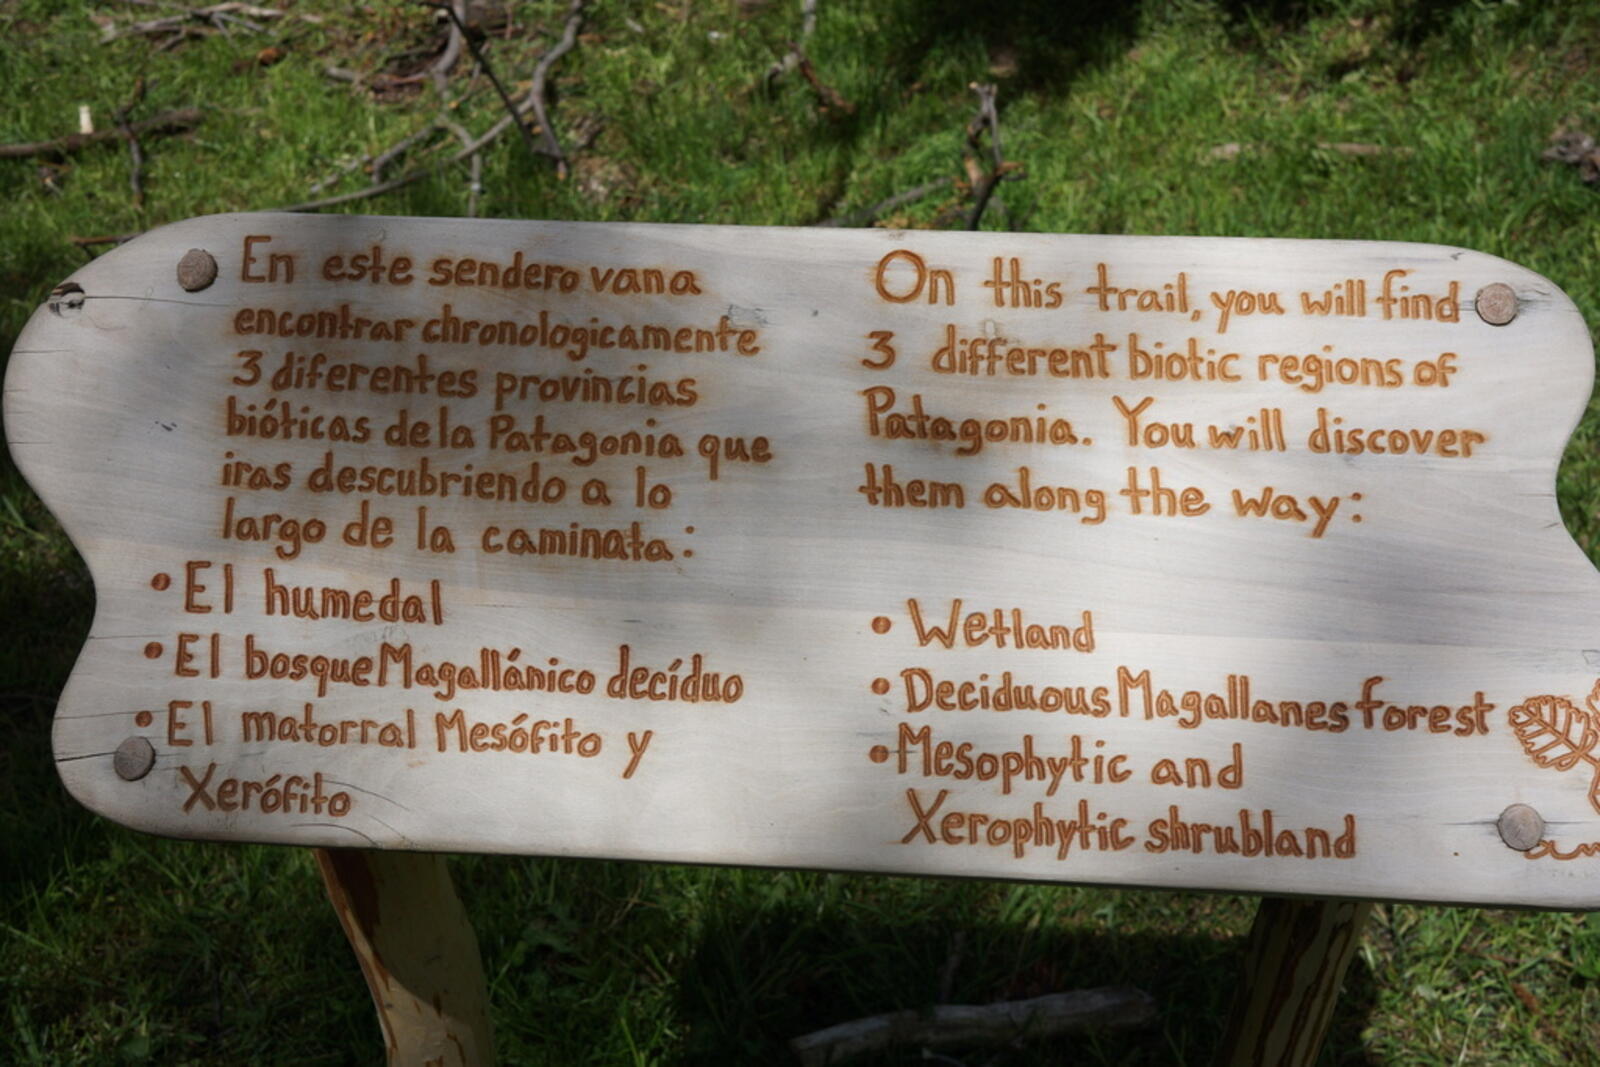 En este sendero van a
encontrar chronologicamente
3 diferentes provincias
bióticas de la Patagonia que
iras descubriendo a lo
largo de la caminata:
• El humedal
• El bosque Magallánico decíduo
• El matorral Mesófito y
Xerófito
On this trail, you will find
3 different biotic regions of
Patagonia. You will discover
them along the way:
• Wetland
• Deciduous Magallanes forest
• Mesophytic and
Xerophytic shrubland